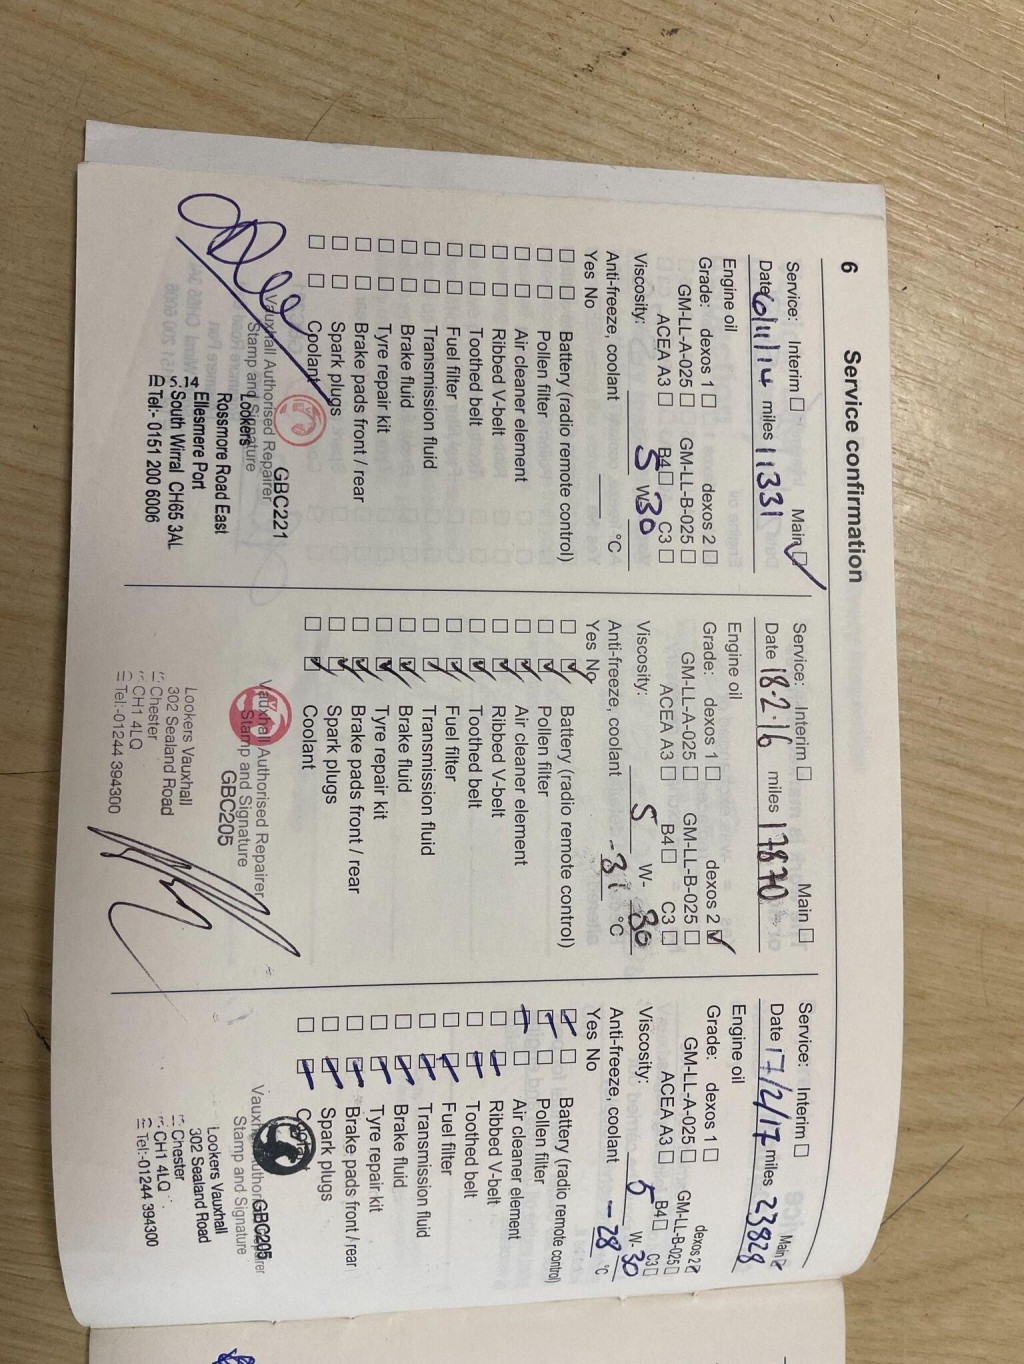 6 Service confirmation
Service: Interim Main
Date 6/11/14 miles 11331
Engine oil
Grade: dexos 1 dexos 2
GM-LL-A-025 GM-LL-B-025
ACEA A3 B4 C3
Viscosity: 5 W- 30
Anti-freeze, coolant °C
Yes No
Battery (radio remote control)
Pollen filter
Air cleaner element
Ribbed V-belt
Toothed belt
Fuel filter
Transmission fluid
Brake fluid
Tyre repair kit
Brake pads front / rear
Spark plugs
Coolant
Vauxhall Authorised Repairer
Stamp and Signature
GBC221
Lookers
Rossmore Road East
Ellesmere Port
South Wirral CH65 3AL
Tel:- 0151 200 6006
Service: Interim Main
Date 18·2·16 miles 17870
Engine oil
Grade: dexos 1 dexos 2
GM-LL-A-025 GM-LL-B-025
ACEA A3 B4 C3
Viscosity: 5 W- 30
Anti-freeze, coolant -31 °C
Yes No
Battery (radio remote control)
Pollen filter
Air cleaner element
Ribbed V-belt
Toothed belt
Fuel filter
Transmission fluid
Brake fluid
Tyre repair kit
Brake pads front / rear
Spark plugs
Coolant
Vauxhall Authorised Repairer
Stamp and Signature
GBC205
Lookers Vauxhall
302 Sealand Road
Chester
CH1 4LQ
Tel:-01244 394300
Service: Interim Main
Date 17/2/17 miles 23828
Engine oil
Grade: dexos 1 dexos 2
GM-LL-A-025 GM-LL-B-025
ACEA A3 B4 C3
Viscosity: 5 W- 30
Anti-freeze, coolant -28 °C
Yes No
Battery (radio remote control)
Pollen filter
Air cleaner element
Ribbed V-belt
Toothed belt
Fuel filter
Transmission fluid
Brake fluid
Tyre repair kit
Brake pads front / rear
Spark plugs
Coolant
Stamp and Signature
GBC205
Lookers Vauxhall
302 Sealand Road
Chester
CH1 4LQ
Tel:-01244 394300